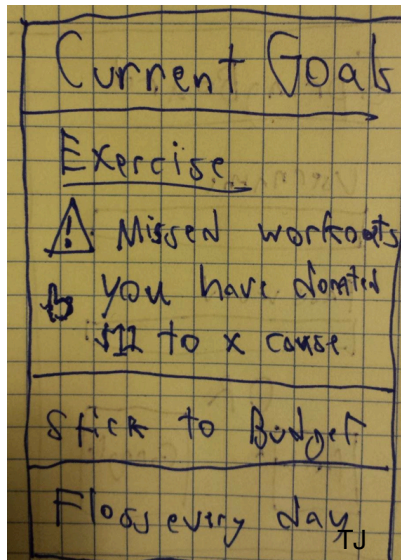 Current Goals
Exercise
! Missed workouts
you have donated
$11 to x cause
Stick to Budget
Floss every day
TJ